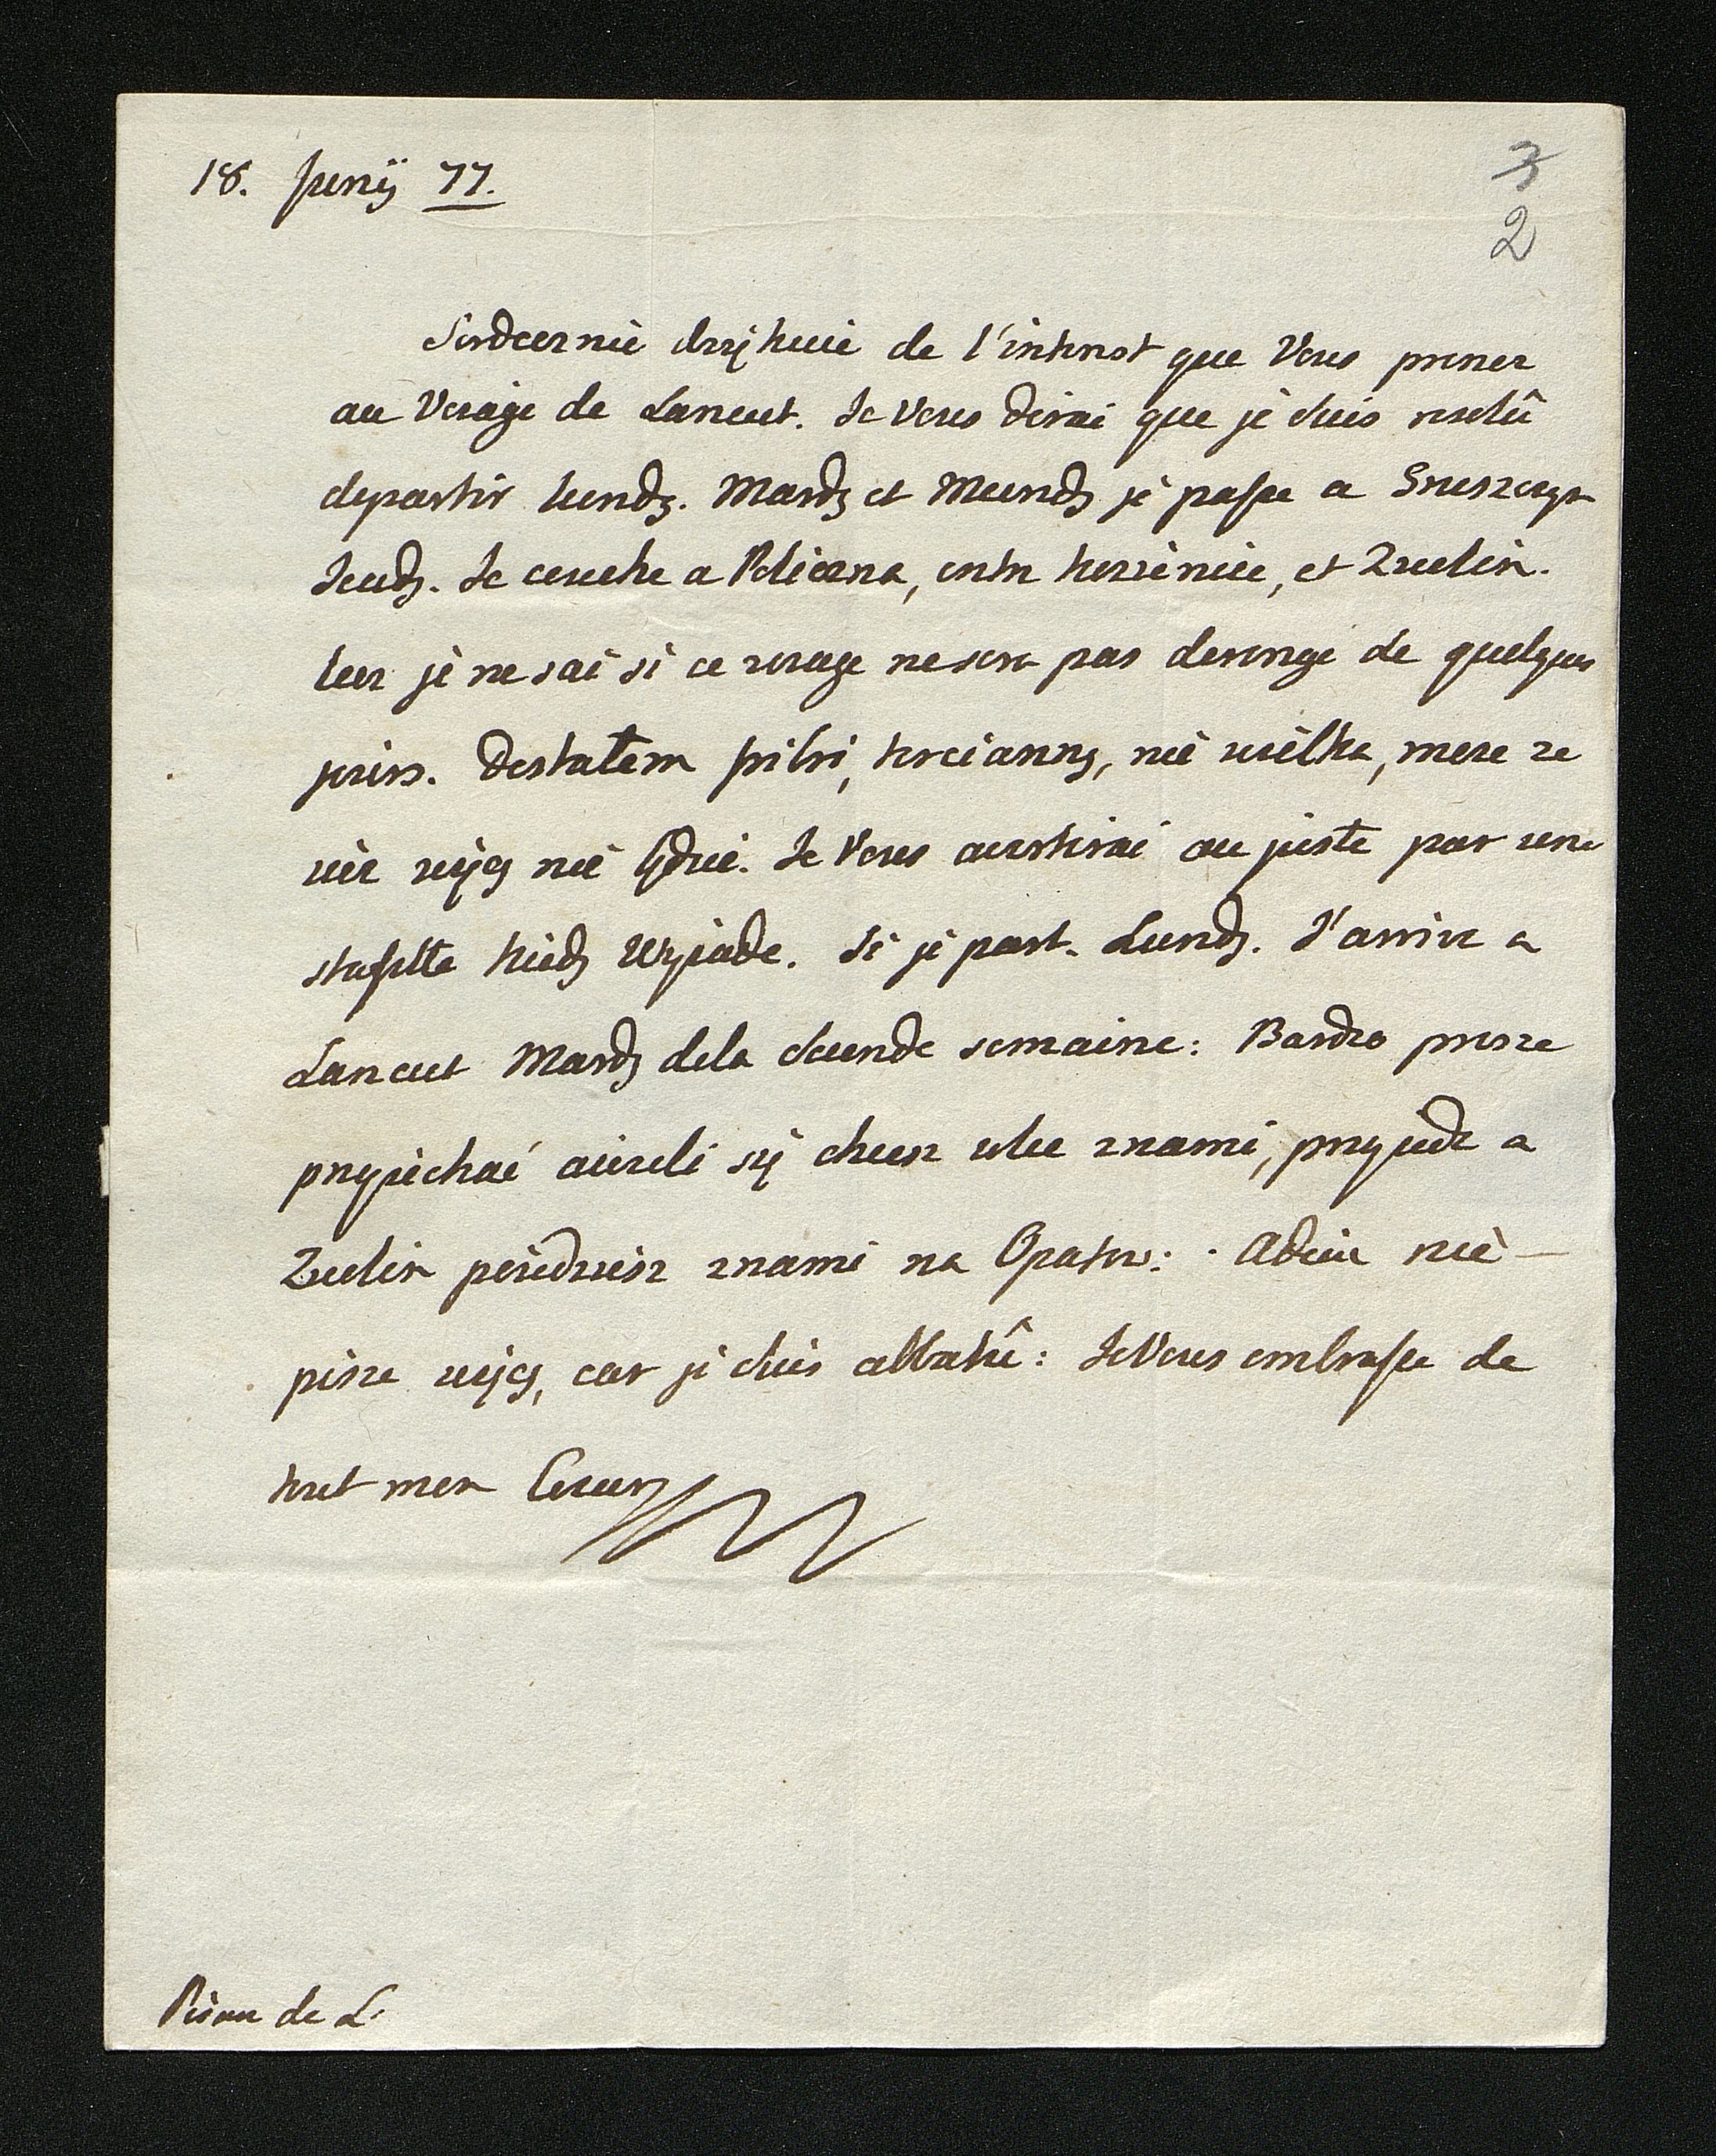 18. Junij 77.
3
2
Serdecznie dziękuie de l'interest que Vous prenez
au Voiage de Lancut. Je Vous dirai que je suis resolû
departir Lundy. Mardy et Mecredy je passe a
Jeudy. Je couche a Policzna, entre Kozienice, et Zwolin.
Lecz je ne sai si ce voiage nesera pas derangé de quelques
jours. Dostałem febri, tercianny, nie wielka, može ze
wiecy nie będzie. Je Vous avertirai au juste par une
stafette kiedy Wyiade. Si je part Lundy. J'arrive a
Lancut Mardy dela seconde semaine: Bardzo prosze
przyiechać aiezeli się chcesz znami, przyiedz a
Zwolin poiedziesz znami na Opatow: . Adieu nie
pisze więcy, car je suis abbatû: Je Vous embrasse de
tout mon Coeur
de L.